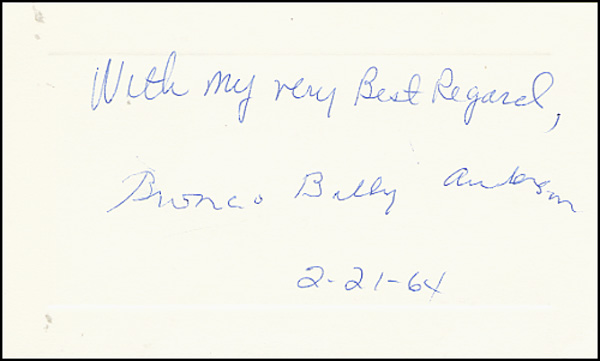 With my very Best Regard,
Bronco Billy Anderson
2-21-64